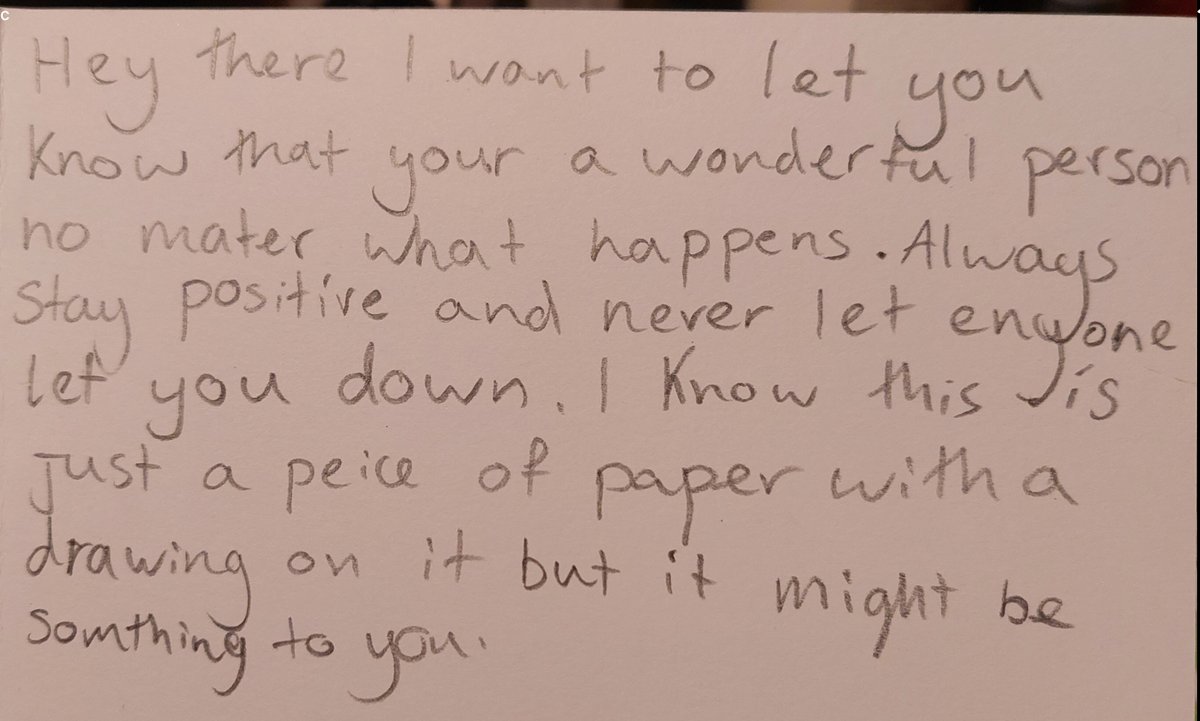 Hey there I want to let you
Know that your a wonderful person
no mater what happens. Always
Stay positive and never let enyone
let you down. I Know this is
just a peice of paper with a
drawing on it but it might be
Somthing to you.